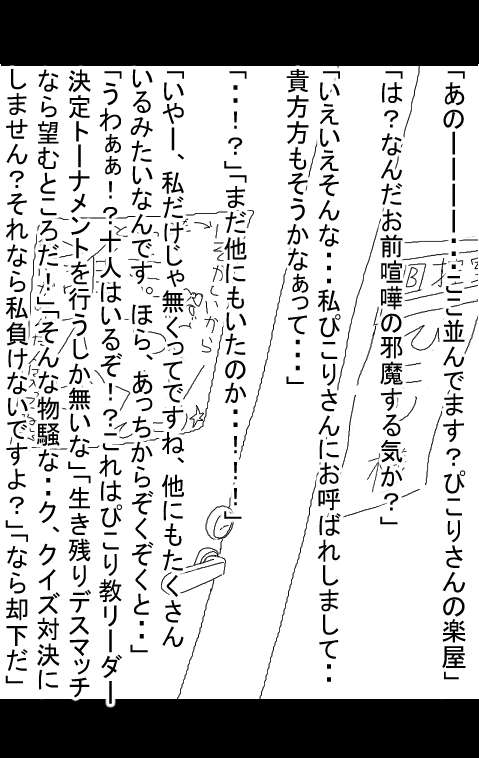 「あのーーーー・・ここ並んでます？ぴこりさんの楽屋」
「は？なんだお前喧嘩の邪魔する気か？」
「いえいえそんな・・・私ぴこりさんにお呼ばれしまして・・
貴方方もそうかなぁって・・・」
「・・！？」「まだ他にもいたのか・・！！！」
「いやー、私だけじゃ無くってですね、他にもたくさん
いるみたいなんです。ほら、あっちからぞくぞくと・・」
「うわぁぁ！？十人はいるぞ！？これはぴこり教リーダー
決定トーナメントを行うしか無いな」「生き残りデスマッチ
なら望むところだ！」「そんな物騒な・・ク、クイズ対決に
しません？それなら私負けないですよ？」「なら却下だ」
いそがしいから